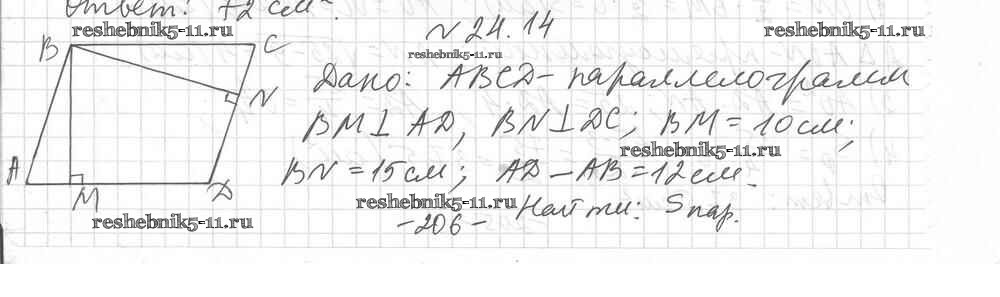 Ответ: 72 см².
reshebnik5-11.ru
№ 24.14
reshebnik5-11.ru
reshebnik5-11.ru
B
C
N
A
M
D
Дано: ABCD - параллелограмм
BM ⊥ AD, BN ⊥ DC; BM = 10 см;
reshebnik5-11.ru
BN = 15 см; AD - AB = 12 см.
reshebnik5-11.ru
Найти: Sпар.
- 206 -
reshebnik5-11.ru